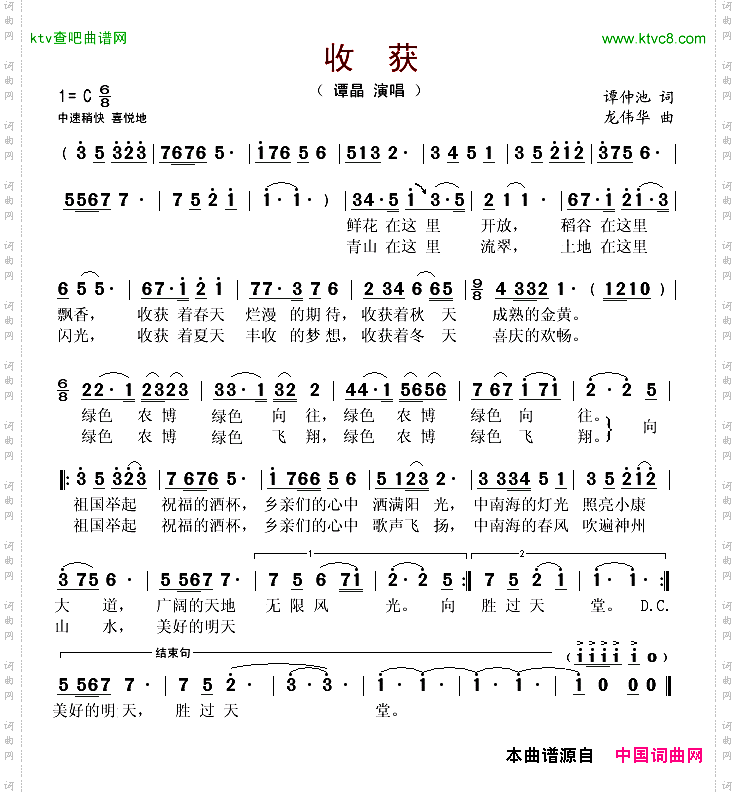 ktv查吧曲谱网
www.ktvc8.com
收 获
（ 谭晶 演唱 ）
1= C 6/8
谭仲池 词
中速稍快 喜悦地
龙伟华 曲
（ 3 5 323 | 7676 5· | 176 5 6 | 513 2· | 3 4 5 1 | 3 5 212 | 375 6· |
5567 7· | 7 5 2 1 | 1· 1· ） | 34·5 1 3·5 | 2 1 1 | 67·1 21·3 |
鲜花 在这 里 开放， 稻谷 在这里
青山 在这 里 流翠， 土地 在这里
6 5 5· | 67·1 2 1 | 77·3 7 6 | 2 34 6 65 | 9/8 4 332 1· （ 1210 ） |
飘香， 收获 着春天 烂漫 的期待，收获着秋 天 成熟的金黄。
闪光， 收获 着夏天 丰收 的梦想，收获着冬 天 喜庆的欢畅。
6/8 22·1 2323 | 33·1 32 2 | 44·1 5656 | 7 67 1 71 | 2· 2 5 |
绿色 农博 绿色 向 往，绿色 农博 绿色 向 往。
绿色 农博 绿色 飞 翔，绿色 农博 绿色 飞 翔。} 向
‖: 3 5 323 | 7 676 5· | 1 766 5 6 | 5 123 2· | 3 334 5 1 | 3 5 212 |
祖国举起 祝福的酒杯，乡亲们的心中 洒满阳 光，中南海的灯光 照亮小康
祖国举起 祝福的酒杯，乡亲们的心中 歌声飞 扬，中南海的春风 吹遍神州
1
2
3 75 6· | 5 567 7· | 7 5 6 71 | 2· 2 5 :‖ 7 5 2 1 | 1· 1· :‖
大 道， 广阔的天地 无限风 光。向 胜过天 堂。D.C.
山 水，美好的明天
结束句
（ 1 1 1 1 1 0 ）
5 567 7· | 7 5 2· | 3· 3· | 1· 1· | 1· 1· | 1 0 0 0 ‖
美好的明天， 胜 过 天 堂。
本曲谱源自 中国词曲网